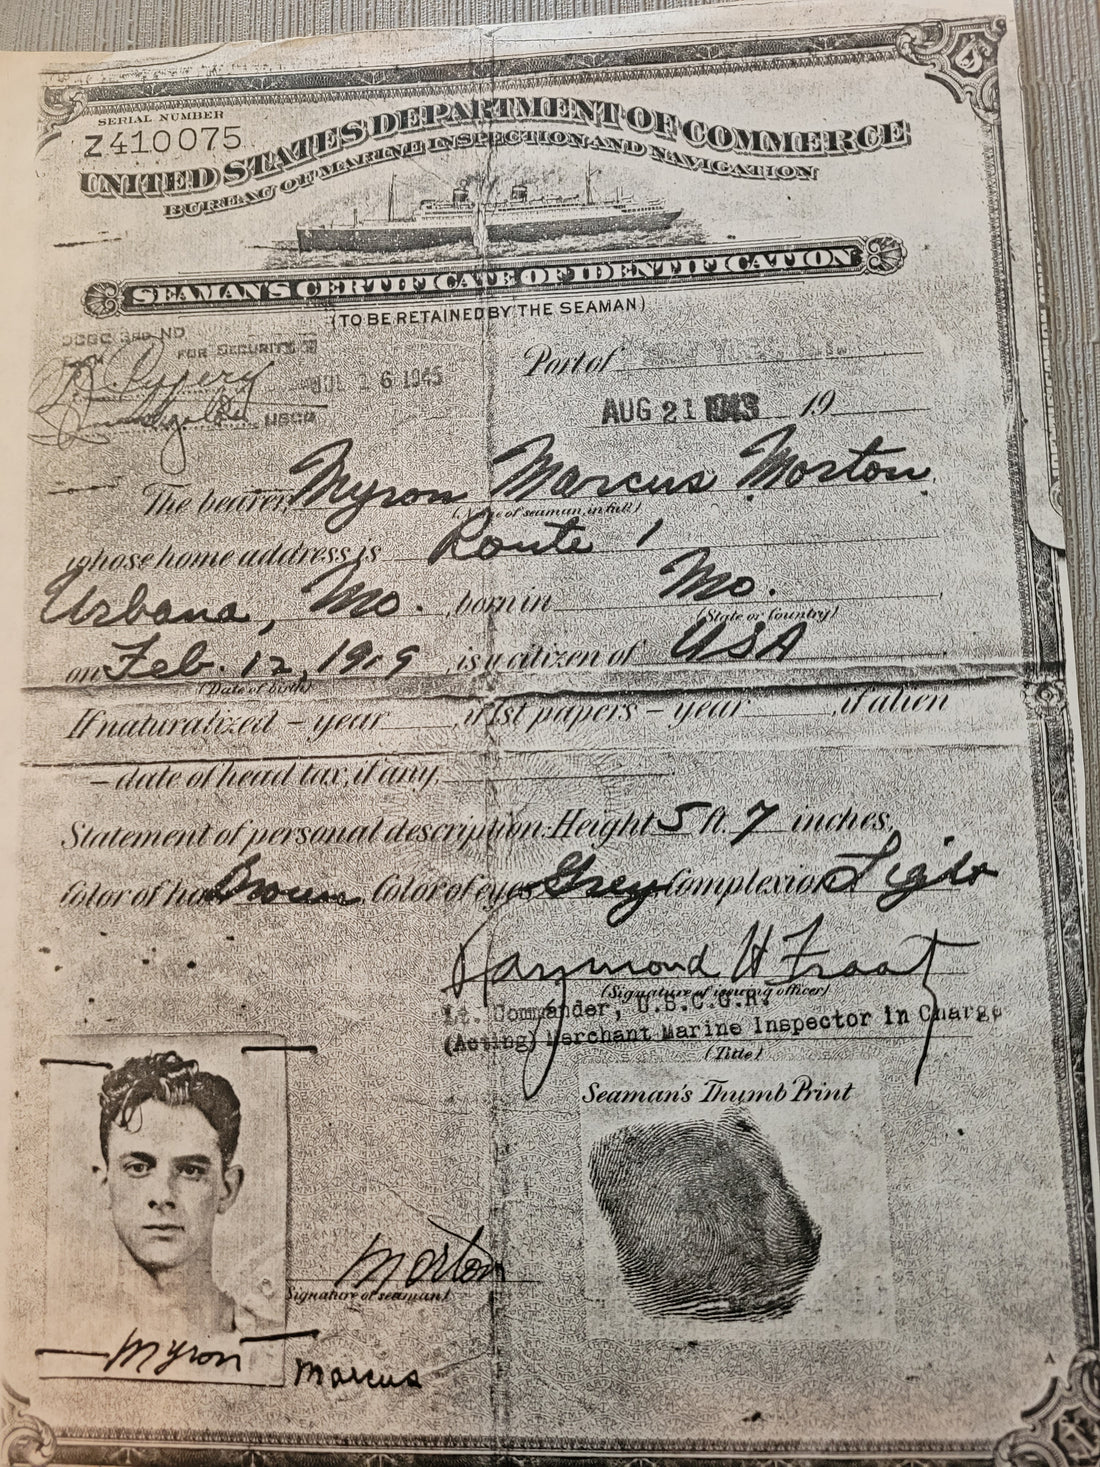 SERIAL NUMBER
Z410075
UNITED STATES DEPARTMENT OF COMMERCE
BUREAU OF MARINE INSPECTION AND NAVIGATION
SEAMAN'S CERTIFICATE OF IDENTIFICATION
(TO BE RETAINED BY THE SEAMAN)
3RD ND
FOR SECURITY
JUL 16 1945
USCG
Port of
AUG 21 1943 19
The bearer, Myron Marcus Morton
(Name of seaman, in full)
whose home address is Route 1
Urbana, Mo. born in Mo.
(State or Country)
on Feb. 12, 1919, is a citizen of USA
(Date of birth)
If naturalized – year , if 1st papers – year , if alien
– date of head tax, if any,
Statement of personal description: Height 5 ft. 7 inches,
Color of hair Brown Color of eyes Grey Complexion
Raymond H Fraat
(Signature of issuing officer)
Lt. Commander, U.S.C.G.R.
(Acting) Merchant Marine Inspector in Charge
(Title)
Seaman's Thumb Print
Morton
Signature of seaman
Myron Marcus
A